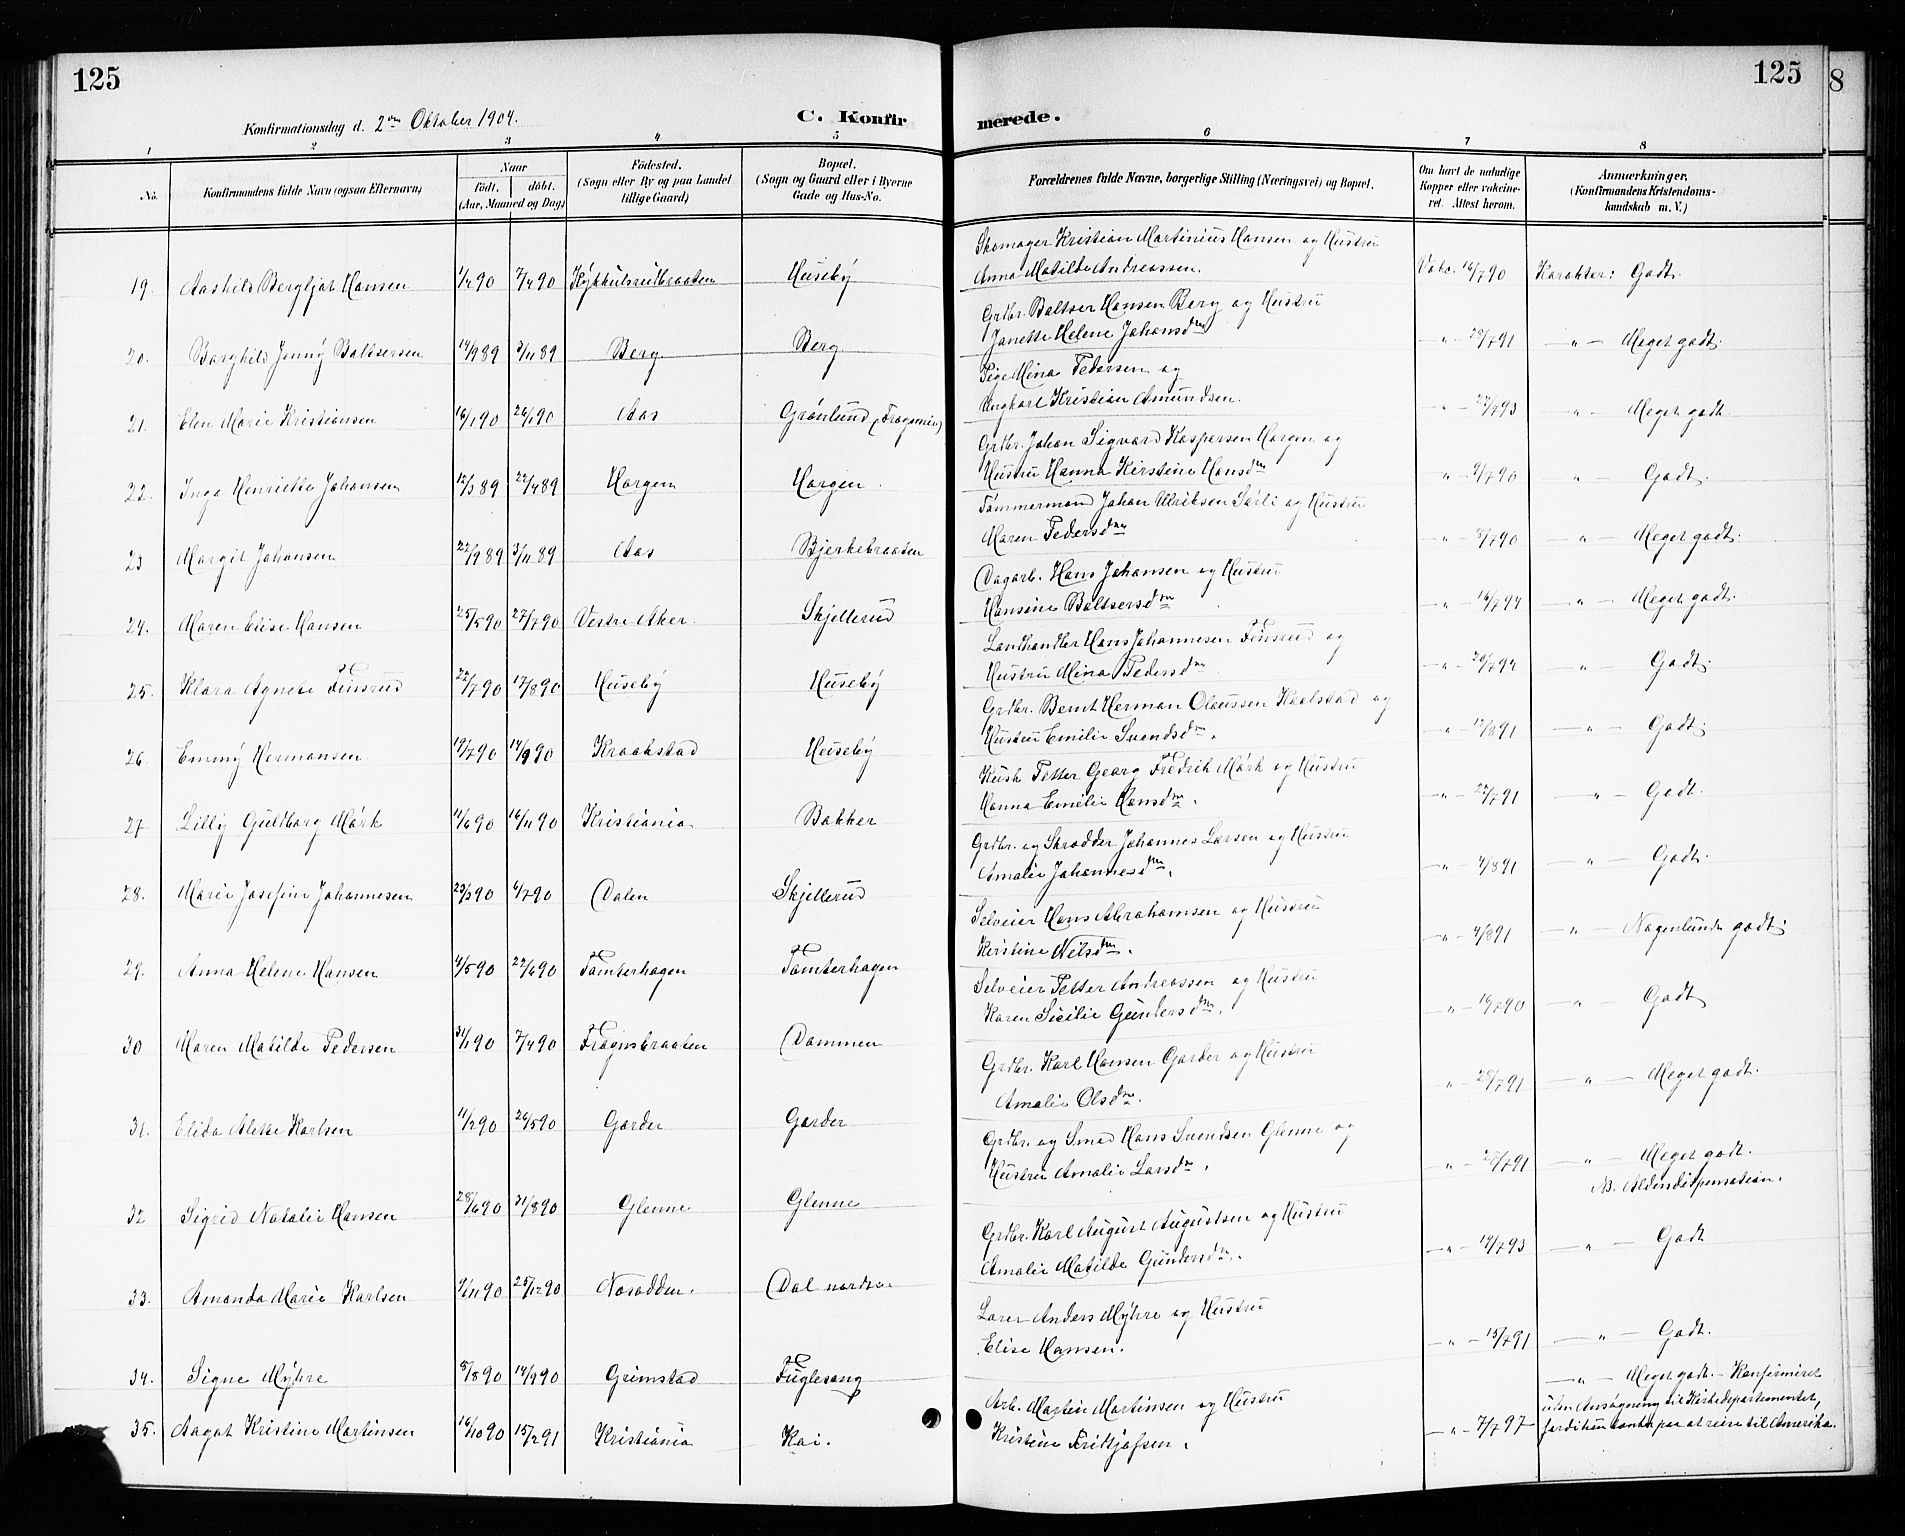 125
125
8
Konfirmationsdag d. 2den Oktober 1904.
C. Konfirmerede.
1 2 3 4 5 6 7 8
No.
Konfirmandens fulde Navn (ogsaa Efternavn)
Naar
født. døbt.
(Aar, Maaned og Dag)
Fødested.
(Sogn eller By og paa Landet tillige Gaard)
Bopæl.
(Sogn og Gaard eller i Byerne Gade og Hus-No.
Forældrenes fulde Navne, borgerlige Stilling (Næringsvei) og Bopæl.
Om havt de naturlige Kopper eller vakcineret. Attest herom.
Anmærkninger.
(Konfirmandens Kristendomskundskab m. V.)
19. Aashild Bergljot Hansen 1/2 90 7/4 90 Huseby Skomager Kristian Martinius Hansen og Hustru Anna Matilde Andreassen. Vakc. 16/7 90 Karakter: Godt.
20. Borghild Jenny Baltsersen 14/9 89 3/11 89 Berg Berg Grdbr. Baltser Hansen Berg og Hustru Janette Helene Johansdtr -"- 28/7 91 -"- Meget godt.
21. Elen Marie Kristiansen 16/1 90 26/1 90 Aas Grønlund (Frogmin) Pige Mina Pedersen og Ungkarl Kristian Amundsen. -"- 27/7 93 " - Meget godt.
22. Inga Henriette Johansen 12/3 89 22/4 89 Horgen Horgen. Grdbr. Johan Sigvard Kaspersen Horgen og Hustru Hanna Kirstine Hansdtr -"- 9/7 90 " - Godt.
23 Margit Johansen 22/9 89 3/11 89 Aas Bjerkebraaten Tømmermand Johan Ulriksen Sørli og Hustru Maren Pedersdtr -"- 8/7 90 -"- Meget godt.
24. Maren Elise Hansen 25/5 90 27/7 90 Vestre Aker. Skjellerud Dagarb. Hans Johansen og Hustru Hansine Baltsersdtr -"- 16/7 94 -"- Meget godt.
25. Klara Agnete Finsrud 22/7 90 17/8 90 Huseby Huseby Landhandler Hans Johannesen Finsrud og Hustru Mina Pedersdtr -"- 20/7 92 -"- Godt.
26. Emmy Hermansen 19/7 90 14/9 90 Kraakstad Huseby Grdbr. Bernt Herman Olaussen Kaalstad og Hustru Emilie Svendsdtr. -"- 12/8 91 -"- Godt.
27 Lilly Guldborg Mørk 11/6 90 16/11 90 Kristiania Bakker Kusk Petter Georg Fredrik Mørk og Hustru Hanna Emilie Hansdtr. -"- 22/7 91 -"- Godt.
28. Marie Josefine Johannesen 23/3 90 6/7 90 Dalen Skjellerud Grdbr. og Skrædder Johannes Larsen og Hustru Amalie Johannesdtr. -"- 4/8 91 -"- Godt.
29. Anna Helene Hansen 4/5 90 22/6 90 Tomterhagen Tomterhagen Selveier Hans Abrahamsen og Hustru Kirstine Nilsdtr. -"- 4/8 91 -"- Nogenlunde godt.
30 Maren Matilde Pedersen 31/1 90 7/4 90 Frognsbraaten Dammen Selveier Petter Andreassen og Hustru Karen Sisilie Gundersdtr. -"- 16/7 90 -"- Godt
31. Elida Alette Karlsen 11/2 90 26/5 90 Garder Garder Grdbr. Karl Hansen Garder og Hustru Amalie Olsdtr. -"- 28/7 91 -"- Meget godt.
32 Sigrid Natalie Hansen 28/6 90 31/8 90 Glenne Glenne Grdbr. og Smed Hans Svendsen Glenne og Hustru Amalie Larsdtr. -"- 27/7 91 -"- Meget godt.
NB. Aldersdispensation.
33. Amanda Marie Karlsen 9/11 90 25/12 90 Nesodden. Dal nordre Grdbr. Karl August Augustsen og Hustru Amalie Matilde Gundersdtr. -"- 14/7 93 -"- Godt
34. Signe Myhre 5/8 90 14/9 90 Grimstad Fuglesang Lærer Anders Myhre og Hustru Elise Hansen. -"- 15/7 91 -"- Godt.
35. Aagot Kristine Martinsen 16/10 90 15/2 91 Kristiania Kai. Arb. Martin Martinsen og Hustru Kristine Fritjofsen. -"- 7/7 97 -"- Meget godt. - Konfirmeret uden Ansøgning til Kirkedepartementet, fordi hun ventes paa at reise til Amerika.